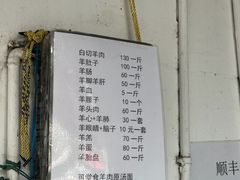 白切羊肉 130一斤
羊肚子 100一斤
羊肠 60一斤
羊脚羊肝 50一斤
羊血 5一斤
羊腰子 10一个
羊头肉 60一斤
羊心+羊肺 30一套
羊眼睛+脑子 10元一套
羊羔 70一斤
羊蛋 80一斤
羊胎盘 60一斤
可堂食羊肉原汤面
顺丰